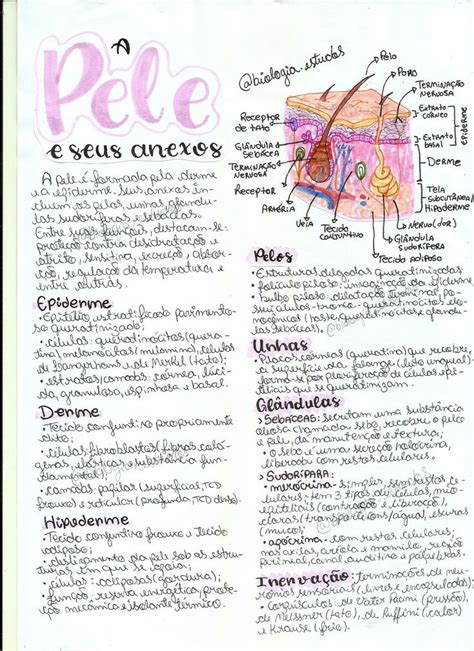 A
Pele
e seus anexos
A pele é formada pela derme
e a epiderme. Seus anexos in-
cluem os pelos, unhas, glându-
las sudoríferas e sebáceas.
Entre suas funções, destacam-se:
proteção contra desidratação e
atrito, sensitiva, excreção, absor-
ção, regulação da temperatura e
entre outras.
Epiderme
• Epitélio estratificado pavimento-
so queratinizado;
• células: queratinócitos (quera-
tina), melanócitos (melanina), células
de Langerhans e de Merkel (tato);
• estradas/camadas: córnea, lúci-
da, granulosa, espinhosa e basal.
Derme
• Tecido conjuntivo propriamente
dito;
• células: fibroblastos (fibras colá-
genas, elásticas e substância fun-
damental);
• camadas: papilar (superficial, TCD
frouxo) e reticular (profunda, TCD denso).
Hipoderme
• Tecido conjuntivo frouxo e tecido
adiposo;
• deslizamento da pele sob as estru-
turas em que se apoia;
• células: adiposas (gordura);
• função: reserva energética, prote-
ção mecânica e isolante térmico.
@biologia.estudos
Pelo
Poro
Terminação
nervosa
Extrato
córneo
Extrato
basal
epiderme
Derme
Tela
subcutânea/
Hipoderme
Nervo (dor)
Glândula
sudorífera
Tecido adiposo
Receptor
de tato
Glândula
sebácea
Terminação
nervosa
Receptor
Artéria
Veia
Tecido
conjuntivo
Pelos
• Estruturas delgadas queratinizadas
• folículo piloso: invaginação da epiderme
• bulbo piloso: dilatação terminal,
Unhas
• Placas córneas (queratina) que recobre,
a superfície da falange
Glândulas
> Sebáceas: secretam uma substância
oleosa chamada sebo, recobre o pelo
e pele, da manutenção e textura;
• o sebo é uma secreção holócrina,
liberado com restos celulares.
> Sudorípara:
• merócrina: simples, sem restos ce-
lulares; tem 3 tipos de células, mio-
epiteliais (contração e liberação),
claras (transporte íons/água), escuras
(muco);
• apócrina: com restos celulares;
nas axilas, aréola e mamilo, região
perineal, canal auditivo e pálpebras.
Inervação: terminações de neu-
rônios sensoriais (livres e encapsulados)
• corpúsculos: de Vater Pacini (pressão),
de Meissner (tato), de Ruffini (calor)
e Krause (frio).